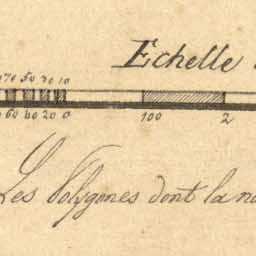 Echelle
70 50 30 10
60 40 20 0 100 2
Les Polygones dont la